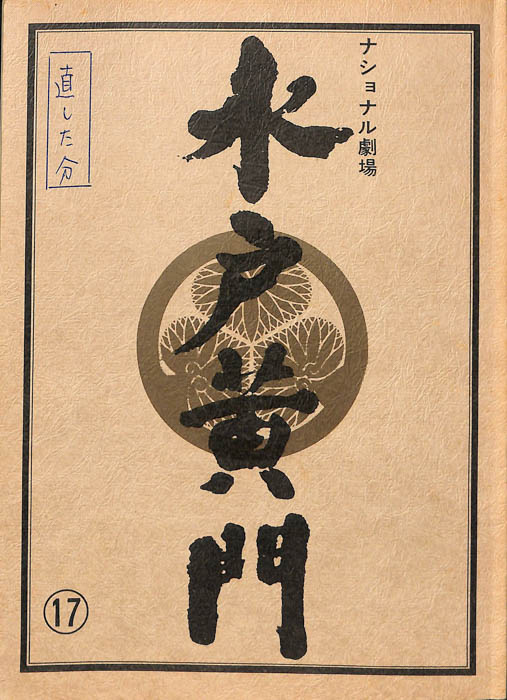 ナショナル劇場
水戸黄門
直した分
⑰